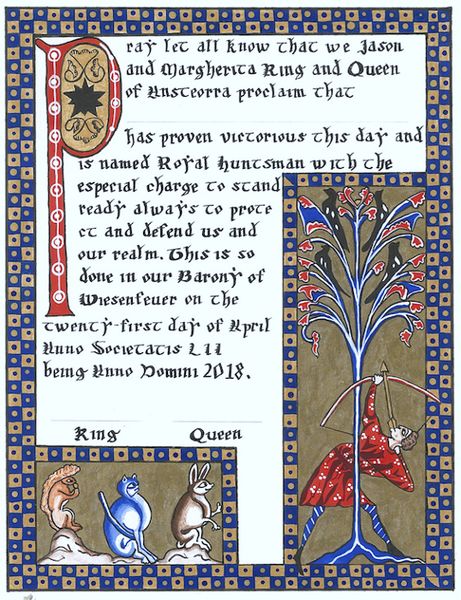 Pray let all know that we Jason
and Margherita King and Queen
of Ansteorra proclaim that
has proven victorious this day and
is named Royal Huntsman with the
especial charge to stand
ready always to prote
ct and defend us and
our realm. This is so
done in our Barony of
Wiesenfeuer on the
twenty-first day of April
Anno Societatis LII
being Anno Domini 2018.
King Queen